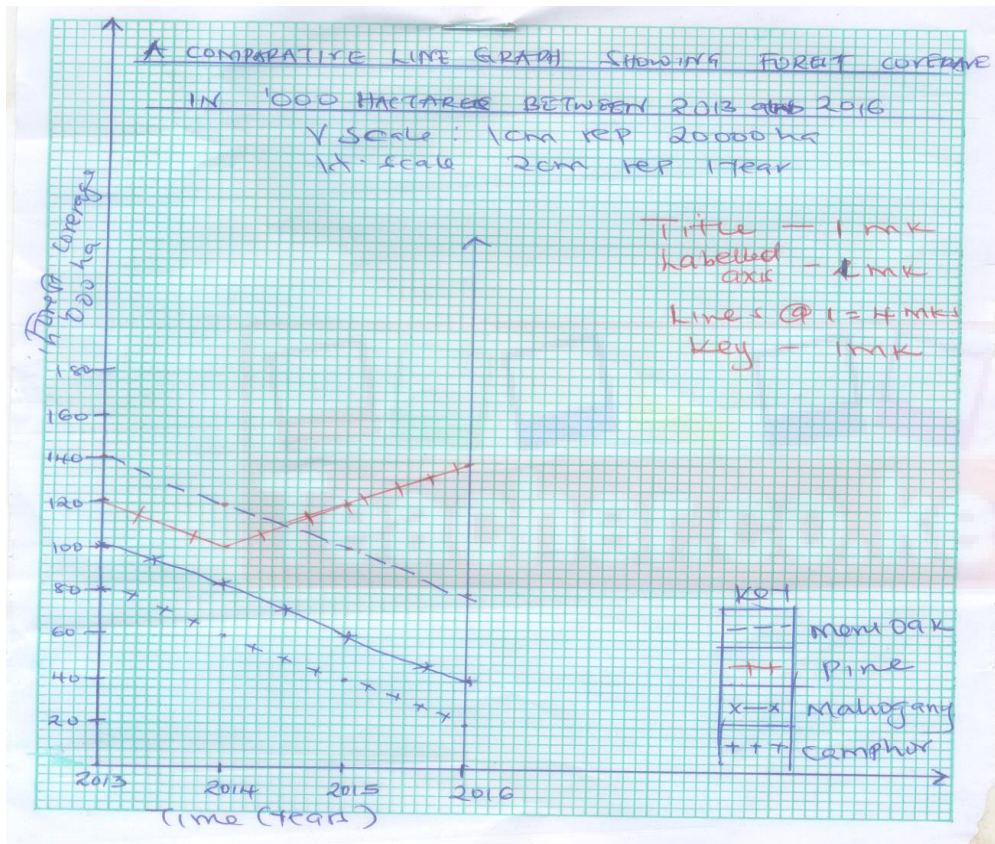 A COMPARATIVE LINE GRAPH SHOWING FOREST COVERAGE
IN '000 HACTARES BETWEEN 2013 and 2016
V. Scale: 1cm rep 20000 ha
H. scale 2cm rep 1 Year
Forest coverage
in '000 ha
Title — 1 mk
Labelled
axis — 1 mk
Lines @ 1 = 4 mks
Key — 1mk
180
160
140
120
100
80
60
40
20
2013 2014 2015 2016
Time (Years)
Key
Meru Oak
Pine
Mahogany
Camphor